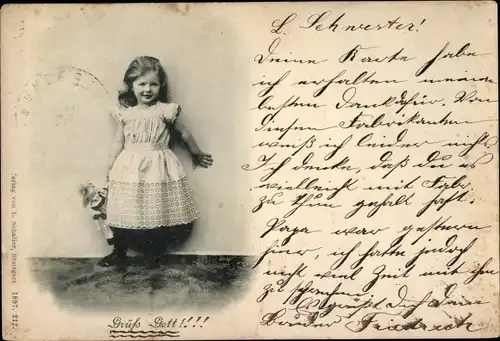 L. Schwester!
Deine Karte habe
ich erhalten meinen
besten Dank dafür. Von
diesen Fabrikanten
weiß ich leider nichts
Ich denke, daß du es
vielleicht mit Fabr.
zu thun gehabt hast.
Papa war gestern
hier, ich hatte jedoch
nicht viel Zeit mit ihm
zu sprechen. Es grüßt Dich Dein
Bruder Friedrich
Grüß Gott!!!!
Verlag von L. Schaller, Stuttgart. 1897. 212.